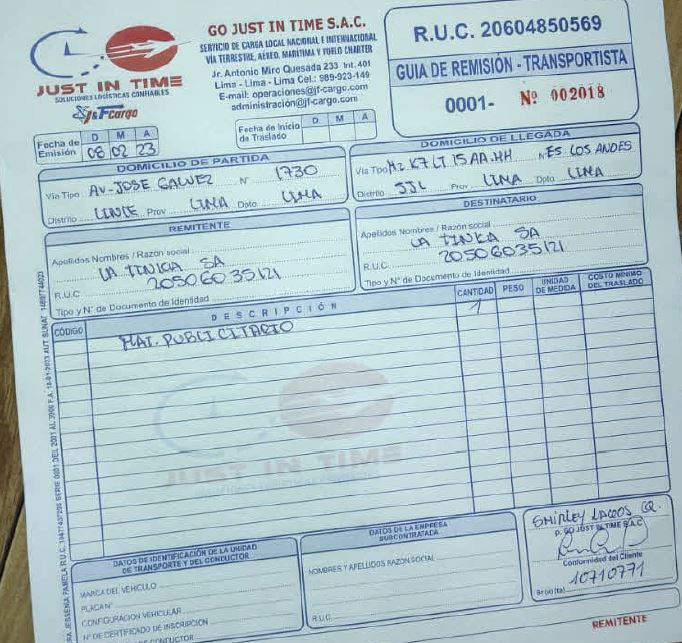 JUST IN TIME
SOLUCIONES LOGÍSTICAS CONFIABLES
J&F Cargo
GO JUST IN TIME S.A.C.
SERVICIO DE CARGA LOCAL NACIONAL E INTERNACIONAL
VÍA TERRESTRE, AÉREO, MARÍTIMA Y VUELO CHARTER
Jr. Antonio Miro Quesada 233 Int. 401
Lima - Lima - Lima Cel.: 989-923-149
E-mail: operaciones@jf-cargo.com
administración@jf-cargo.com
R.U.C. 20604850569
GUIA DE REMISIÓN - TRANSPORTISTA
0001- Nº 002018
Fecha de Emisión D M A
08 02 23
Fecha de Inicio de Traslado D M A
DOMICILIO DE PARTIDA
Vía Tipo AV. JOSE GALVEZ Nº 1730
Distrito LINCE Prov LIMA Dpto LIMA
DOMICILIO DE LLEGADA
Vía Tipo Mz K7 LT 15 AA.HH Nº ES LOS ANDES
Distrito SJL Prov LIMA Dpto LIMA
REMITENTE
Apellidos Nombres / Razón social
LA TINKA SA
R.U.C 20506035121
Tipo y Nº de Documento de Identidad
DESTINATARIO
Apellidos Nombres / Razón social
LA TINKA SA
R.U.C. 20506035121
Tipo y Nº de Documento de Identidad
CÓDIGO DESCRIPCIÓN CANTIDAD PESO UNIDAD DE MEDIDA COSTO MÍNIMO DEL TRASLADO
MAT. PUBLICITARIO 1
JUST IN TIME
DATOS DE IDENTIFICACIÓN DE LA UNIDAD DE TRANSPORTE Y DEL CONDUCTOR
MARCA DEL VEHÍCULO
PLACA Nº
CONFIGURACIÓN VEHICULAR
Nº DE CERTIFICADO DE INSCRIPCIÓN
DATOS DE LA EMPRESA SUBCONTRATADA
NOMBRES Y APELLIDOS RAZÓN SOCIAL
R.U.C.
SHIRLEY LAGOS
P. GO JUST IN TIME S.A.C
Conformidad del Cliente
10710771
REMITENTE